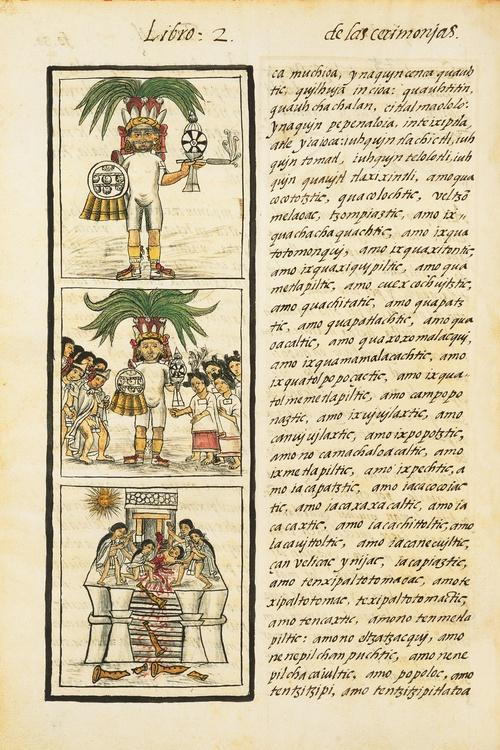 Libro: 2. de las cerimonjas.
ca muchioa, ynaqujn cenca quauh
tic, qujlhuja in cioa: quauhtitin,
quauhchachalan, citlalmaololo:
ynaqujn pepenaloia, inteixiptla
atle yiaioca: iuhqujn tlachictli, iuh
qujn tomatl, iuhqujn telolotli, iuh
qujn quavitl tlaxixintli, amo qua
cocototztic, quacolochtic, vel tzō
melaoac, tzompiaztic, amo ix =
quachachaquachtic, amo ixqua
totomonquj, amo ixquaxitontic,
amo ixquaxiqujpiltic, amo qua
metlapiltic, amo cuexcochujtztic,
amo quachitatic, amo quapatz
tic, amo quapatlachtic, amo qua
oacaltic, amo quaxoxomalacquj,
amo ixquamamalacachtic, amo
ixquatolpopoçactic, amo ixqua-
tolmemetlapiltic, amo campopo
naztic, amo ixvivilaxtic, amo
canvivilaxtic, amo ixpopotztic,
amo no camachaloacaltic, amo
ixmetlapiltic, amo ixpechtic, a
mo iacapatztic, amo iacacocoiac
tic, amo iacaxaxacaltic, amo ia
cacaxtic, amo iacachittoltic, amo
iacavittoltic, amo iacanecujltic,
çan velicac ynijac, iacapiaztic,
amo tenxipaltotomaoac, amo te
xipaltotomac, texipaltotomactic,
amo tencaxtic, amono tenmetla
piltic: amono eltzatzacquj, amo
nenepilchanpuchtic, amo nene
pilchacaiultic, amo popoloc, amo
tentzitzipi, amo tentzitzipitlatoa